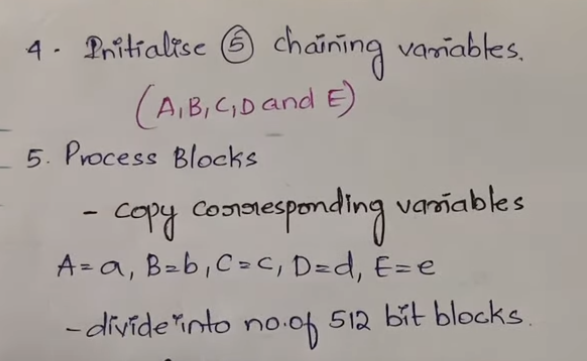 4. Initialise 5 chaining variables.
(A,B,C,D and E)
5. Process Blocks
- copy corresponding variables
A=a, B=b, C=c, D=d, E=e
- divide into no.of 512 bit blocks.